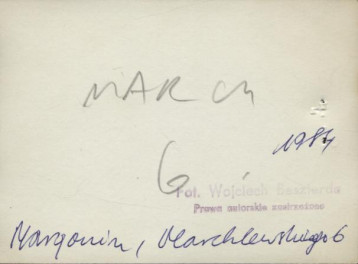 MARCH
6
1984
Fot. Wojciech
Prawa autorskie zastrzeżone
Margonin, Marchlewskiego 6